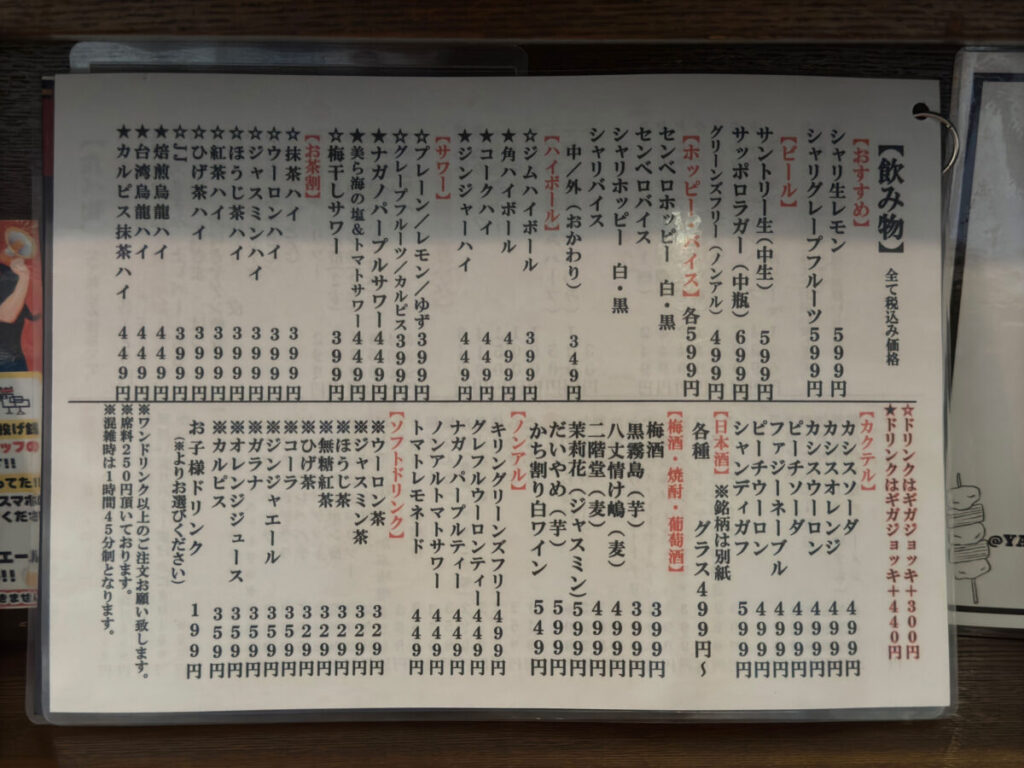 【飲み物】 全て税込み価格
【おすすめ】
シャリ生レモン 599円
シャリグレープフルーツ599円
【ビール】
サントリー生(中生) 599円
サッポロラガー(中瓶) 699円
グリーンズフリー(ノンアル) 499円
【ホッピー・バイス】各599円
センベロホッピー 白・黒
センベロバイス
シャリホッピー 白・黒
シャリバイス
中/外(おかわり) 349円
【ハイボール】
☆ジムハイボール 399円
★角ハイボール 499円
★コークハイ 449円
★ジンジャーハイ 449円
【サワー】
☆プレーン/レモン/ゆず399円
☆グレープフルーツ/カルピス399円
★ナガノパープルサワー449円
★美ら海の塩&トマトサワー449円
☆梅干しサワー 399円
【お茶割】
☆抹茶ハイ 399円
☆ウーロンハイ 399円
☆ジャスミンハイ 399円
☆ほうじ茶ハイ 399円
☆紅茶ハイ 399円
☆ひげ茶ハイ 399円
☆ 399円
★焙煎烏龍ハイ 449円
★台湾烏龍ハイ 449円
★カルピス抹茶ハイ 449円
☆ドリンクはギガジョッキ+300円
★ドリンクはギガジョッキ+440円
【カクテル】
カシスソーダ 499円
カシスオレンジ 499円
カシスウーロン 499円
ピーチソーダ 499円
ファジーネーブル 499円
ピーチウーロン 499円
シャンディガフ 599円
【日本酒】※銘柄は別紙
各種 グラス499円〜
【梅酒・焼酎・葡萄酒】
梅酒 399円
黒霧島(芋) 399円
八丈情け嶋(麦) 499円
二階堂(麦) 499円
茉莉花(ジャスミン)599円
だいやめ(芋) 599円
かち割り白ワイン 549円
【ノンアル】
キリングリーンズフリー499円
グレフルウーロンティー449円
ナガノパープルティー 449円
ノンアルトマトサワー 449円
トマトレモネード 449円
【ソフトドリンク】
※ウーロン茶 329円
※ジャスミン茶 329円
※ほうじ茶 329円
※無糖紅茶 329円
※ひげ茶 329円
※コーラ 359円
※ジンジャエール 359円
※ガラナ 359円
※オレンジジュース 359円
※カルピス 359円
お子様ドリンク 199円
(※よりお選びください)
※ワンドリンク以上のご注文お願い致します。
※席料250円頂いております。
※混雑時は1時間45分制となります。
@YA